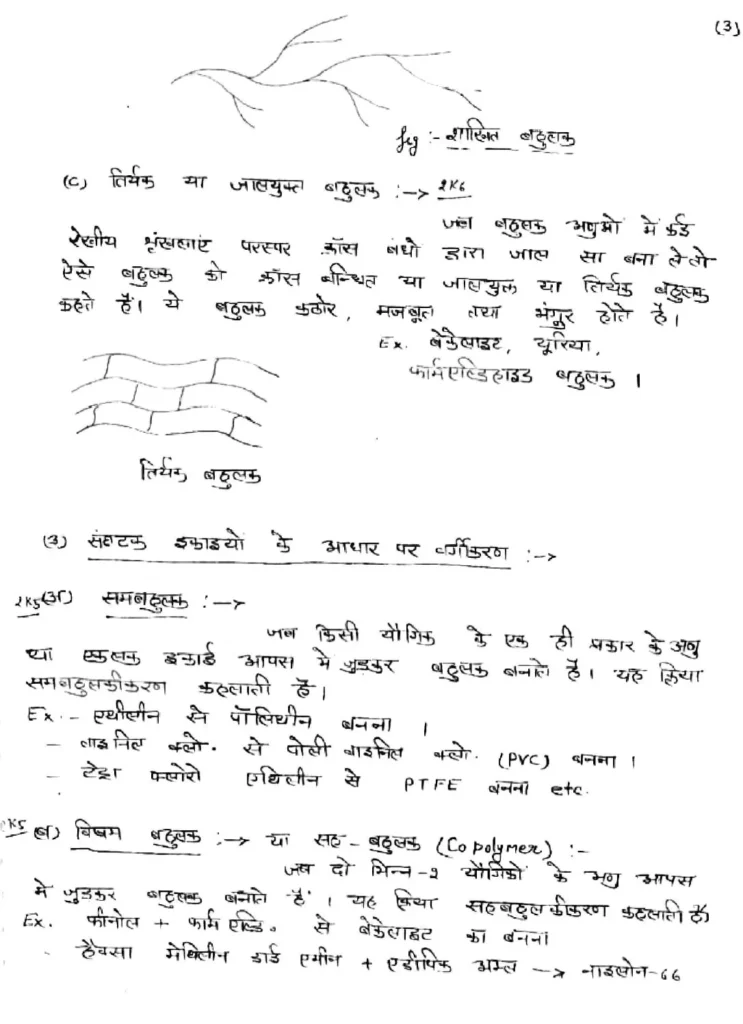 (3)
fig :- शाखित बहुलक
(c) तिर्यक या जालयुक्त बहुलक :-> 2K6
जब बहुलक अणुओं में कई
रेखीय श्रृंखलाएं परस्पर क्रॉस बंधो द्वारा जाल सा बना ले तो
ऐसे बहुलक को क्रॉस बन्धित या जालयुक्त या तिर्यक बहुलक
कहते हैं। ये बहुलक कठोर, मजबूत तथा भंगुर होते है।
Ex. बेकेलाइट, यूरिया,
फार्मएल्डिहाइड बहुलक ।
तिर्यक बहुलक
(3) संघटक इकाइयों के आधार पर वर्गीकरण :->
2K5 (अ) समबहुलक :->
जब किसी यौगिक के एक ही प्रकार के अणु
या एकलक इकाई आपस मे जुडकर बहुलक बनाते है। यह क्रिया
समबहुलकीकरण कहलाती है।
Ex.- एथीलीन से पॉलिथीन बनना ।
- वाइनिल क्लो. से पोली वाइनिल क्लो. (PVC) बनना ।
- टेट्रा फ्लोरो एथिलीन से PTFE बनना etc.
2K5 (ब) विषम बहुलक :-> या सह-बहुलक (Copolymer) :-
जब दो भिन्न-2 यौगिकों के अणु आपस
मे जुडकर बहुलक बनाते हैं । यह क्रिया सहबहुलकीकरण कहलाती है।
Ex. फीनोल + फार्म एल्डि. से बेकेलाइट का बनना
- हैक्सा मेथिलीन डाई एमीन + एडीपिक अम्ल -> नाइलोन-66